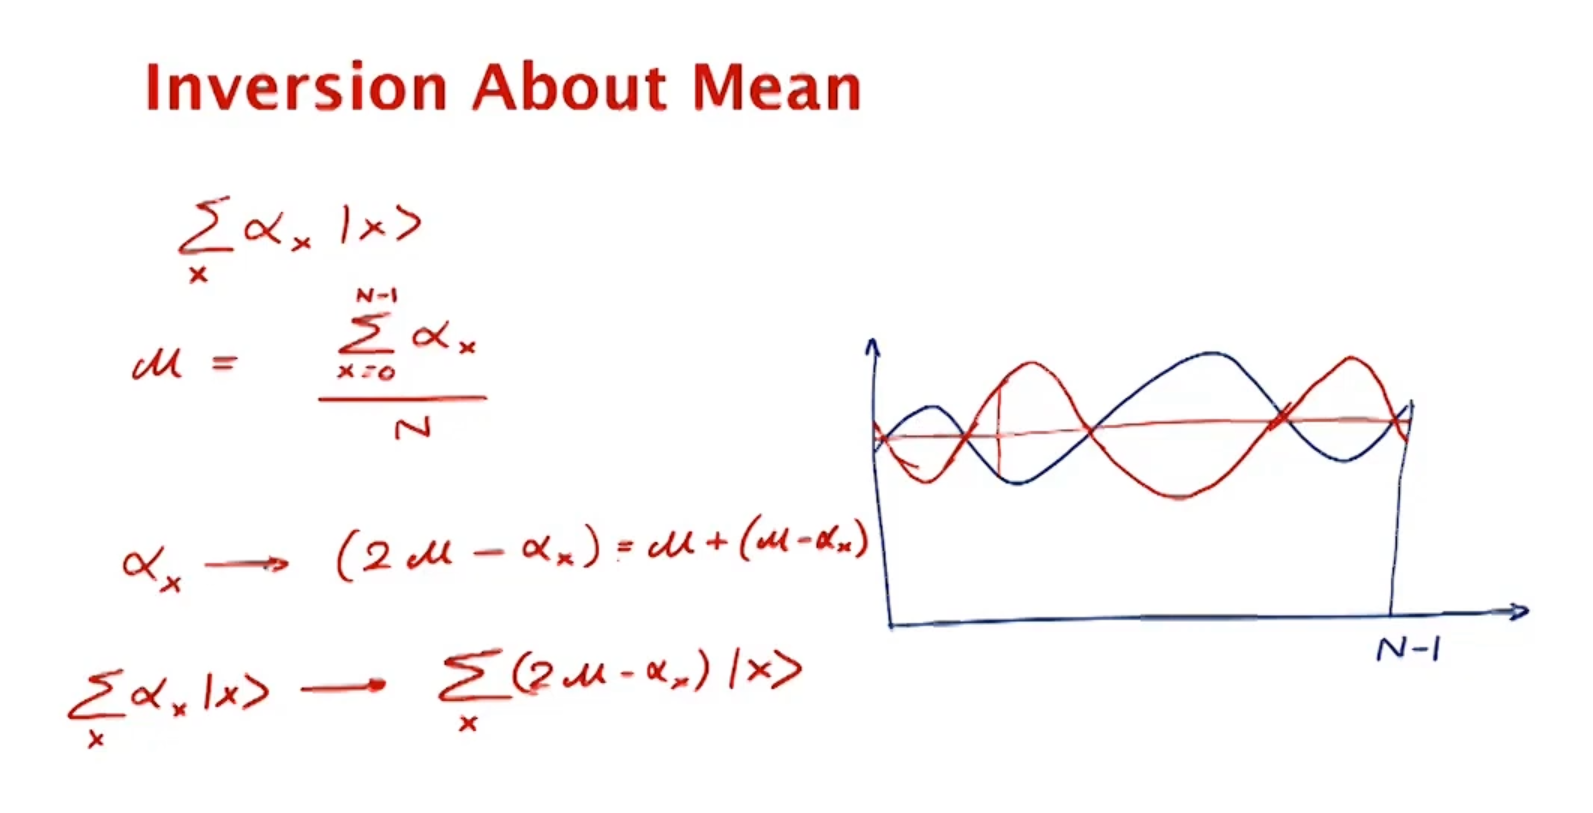 Inversion About Mean
∑ αₓ |x>
x
N-1
μ = ∑ αₓ
x=0
N
αₓ → (2μ - αₓ) = μ + (μ-αₓ)
∑ αₓ |x> → ∑ (2μ - αₓ) |x>
x x
N-1